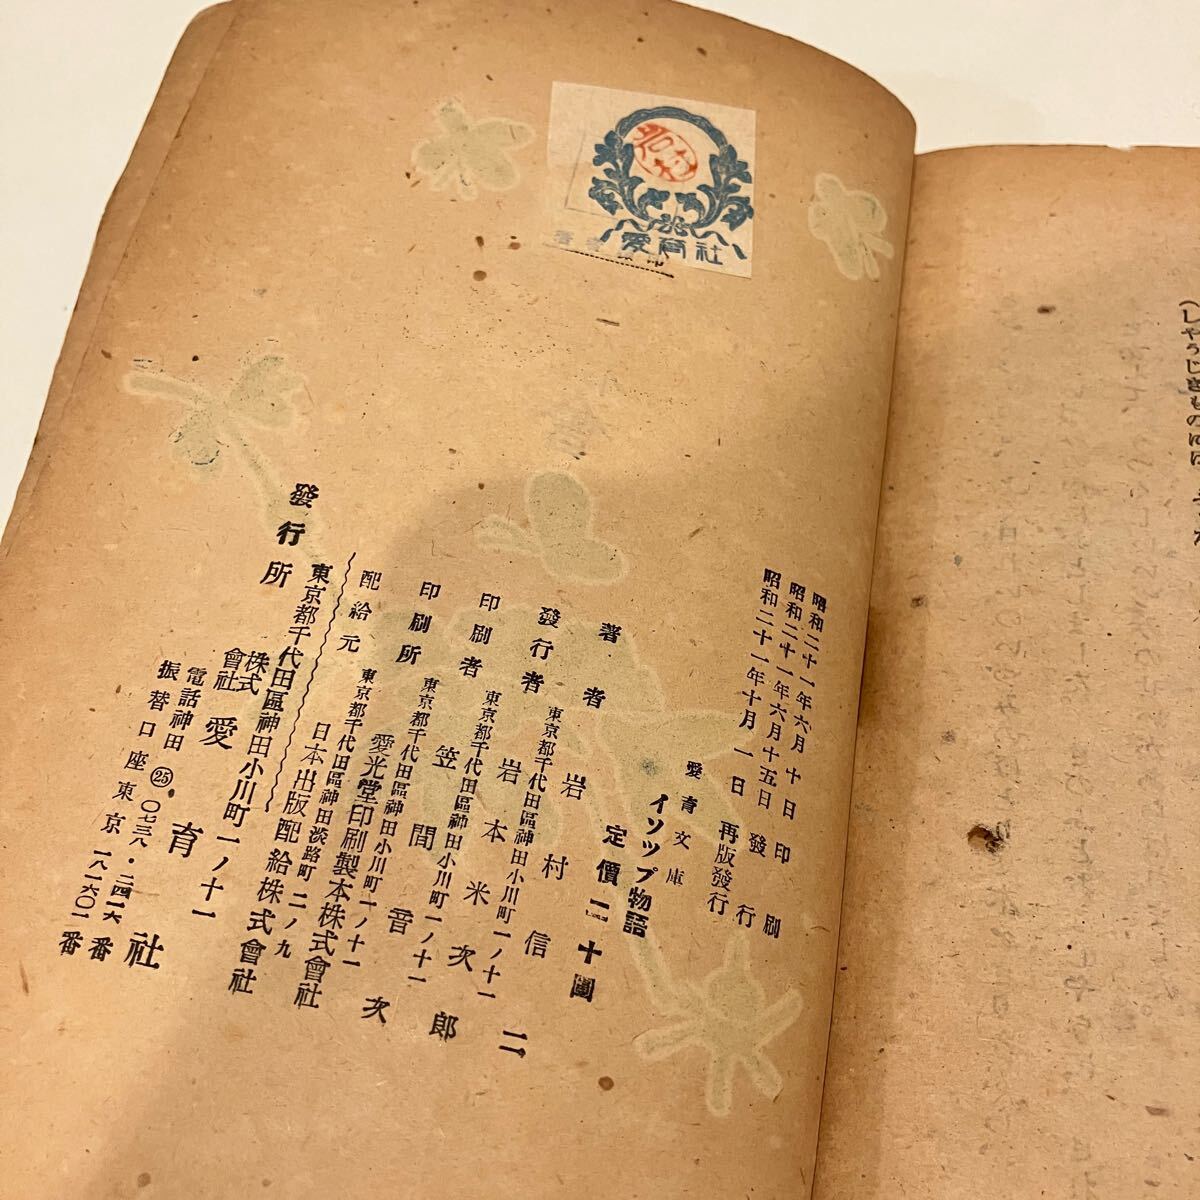 愛育社
昭和二十一年六月十日 印刷
昭和二十一年六月十五日 發行
昭和二十一年十月一日 再版發行
愛育文庫
イソップ物語
定價二十圓
著者 岩村信二
發行者 東京都千代田區神田小川町一ノ十一
岩本米次郎
印刷者 東京都千代田區神田小川町一ノ十一
笠間音次
印刷所 東京都千代田區神田小川町一ノ十一
愛光堂印刷製本株式會社
配給元 東京都千代田區神田淡路町二ノ九
日本出版配給株式會社
發行所 東京都千代田區神田小川町一ノ十一
株式會社 愛育社
電話神田㉕〇七三八・二四一六番
振替口座東京一八一六〇一番